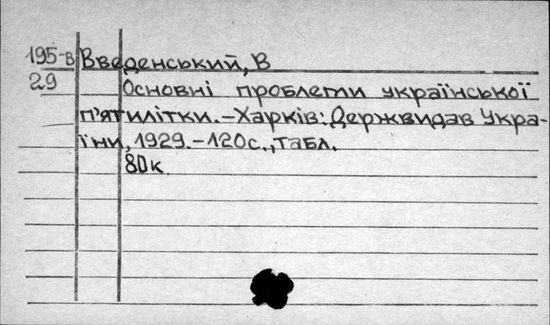 195-в Введенський, В
29 Основні проблеми української
п'ятилітки.-Харків: Держвидав Укра-
їни, 1929.-120с., табл.
80к